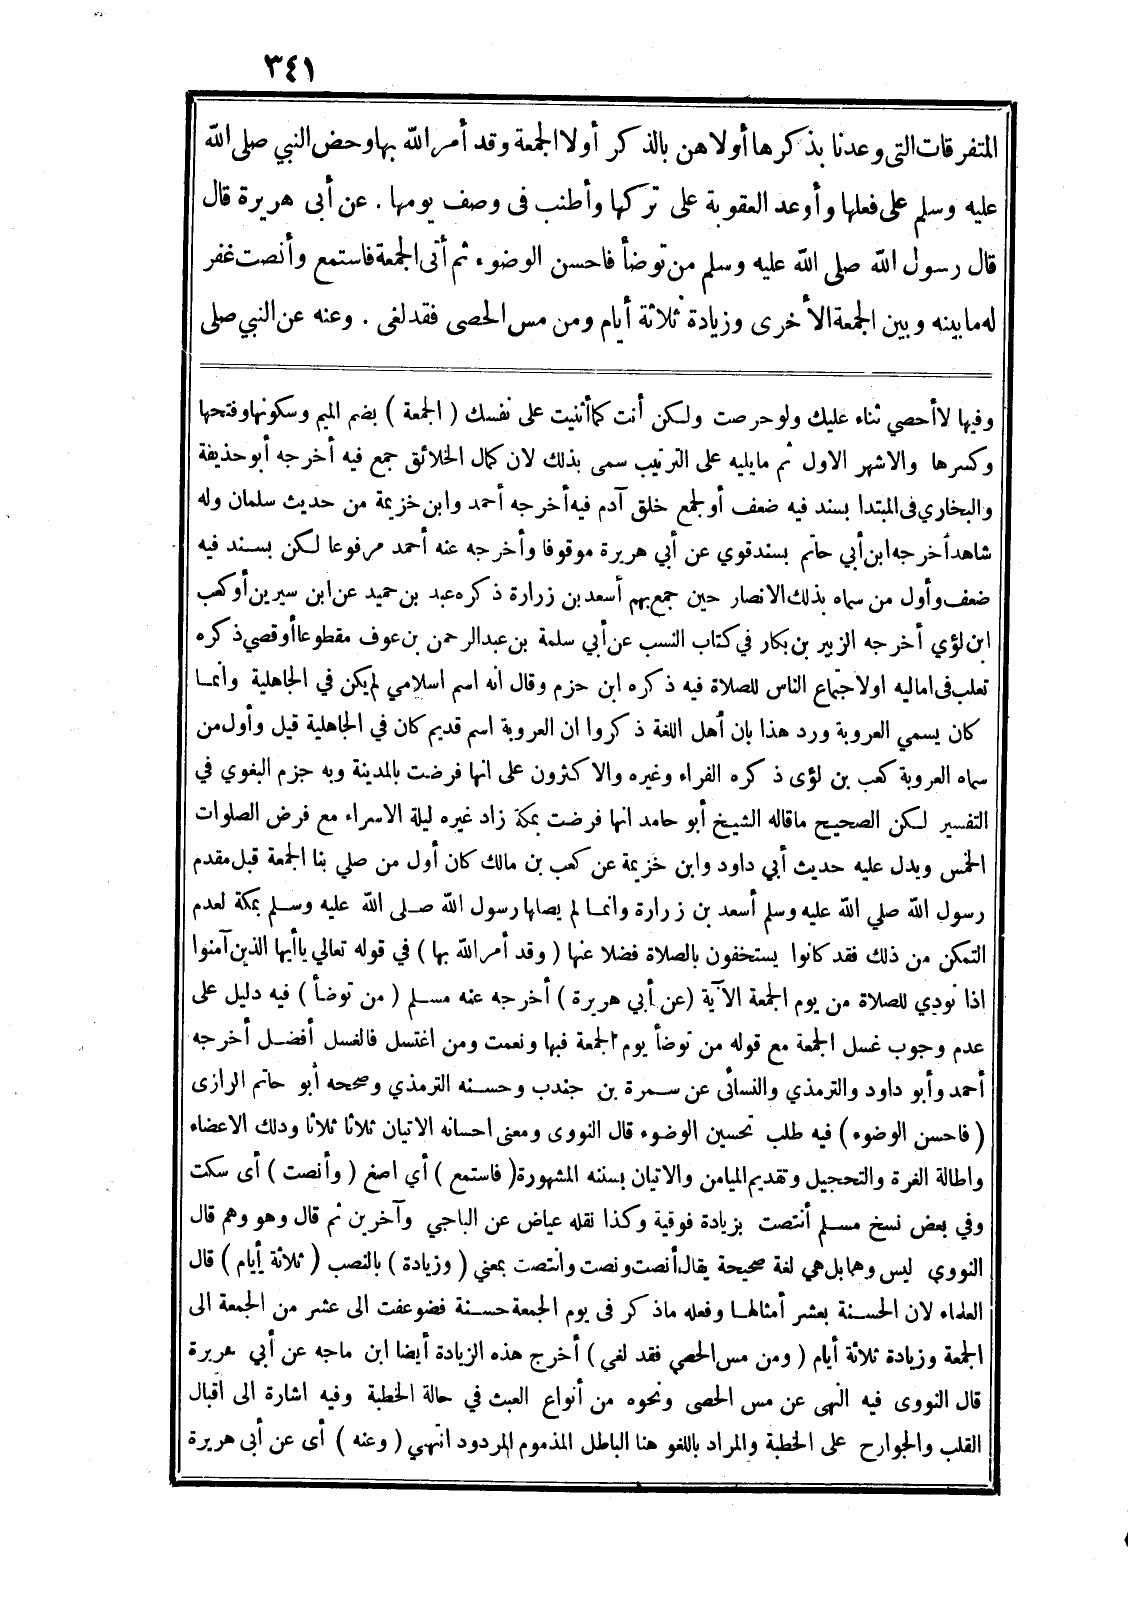 ٣٤١
المتفرقات التى وعدنا بذكرها أولاهن بالذكر أولا الجمعة وقد أمر الله بها وحض النبي صلى الله
عليه وسلم على فعلها وأوعد العقوبة على تركها وأطنب فى وصف يومها . عن أبى هريرة قال
قال رسول الله صلى الله عليه وسلم من توضأ فاحسن الوضوء ثم أتى الجمعة فاستمع وأنصت غفر
له مابينه وبين الجمعة الأخرى وزيادة ثلاثة أيام ومن مس الحصى فقد لغى . وعنه عن النبي صلى
وفيها لا أحصي ثناء عليك ولو حرصت ولكن أنت كما أثنيت على نفسك ( الجمعة ) بضم الميم وسكونها وفتحها
وكسرها والاشهر الاول ثم مايليه على الترتيب سمى بذلك لان كمال الخلائق جمع فيه أخرجه أبو حذيفة
والبخاري فى المبتدا بسند فيه ضعف أو لجمع خلق آدم فيه أخرجه أحمد وابن خزيمة من حديث سلمان وله
شاهد أخرجه ابن أبي حاتم بسند قوي عن أبي هريرة موقوفا وأخرجه عنه أحمد مرفوعا لكن بسند فيه
ضعف وأول من سماه بذلك الانصار حين جمع بهم أسعد بن زرارة ذكره عبد بن حميد عن ابن سيرين أو كعب
ابن لؤي أخرجه الزبير بن بكار في كتاب النسب عن أبي سلمة بن عبد الرحمن بن عوف مقطوعا أو قصي ذكره
ثعلب فى اماليه اولاجتماع الناس للصلاة فيه ذكره ابن حزم وقال أنه اسم اسلامي لم يكن في الجاهلية وانما
كان يسمي العروبة ورد هذا بان أهل اللغة ذكروا ان العروبة اسم قديم كان في الجاهلية قيل وأول من
سماه العروبة كعب بن لؤى ذكره الفراء وغيره والاكثرون على انها فرضت بالمدينة وبه جزم البغوي في
التفسير لكن الصحيح ماقاله الشيخ أبو حامد انها فرضت بمكة زاد غيره ليلة الاسراء مع فرض الصلوات
الخمس ويدل عليه حديث أبي داود وابن خزيمة عن كعب بن مالك كان أول من صلي بنا الجمعة قبل مقدم
رسول الله صلي الله عليه وسلم أسعد بن زرارة وانما لم يصلها رسول الله صلى الله عليه وسلم بمكة لعدم
التمكن من ذلك فقد كانوا يستخفون بالصلاة فضلا عنها ( وقد أمر الله بها ) في قوله تعالي ياأيها الذين آمنوا
اذا نودي للصلاة من يوم الجمعة الآية (عن أبي هريرة ) أخرجه عنه مسلم ( من توضأ ) فيه دليل على
عدم وجوب غسل الجمعة مع قوله من توضأ يوم الجمعة فبها ونعمت ومن اغتسل فالغسل أفضل أخرجه
أحمد وأبو داود والترمذي والنسائى عن سمرة بن جندب وحسنه الترمذي وصححه أبو حاتم الرازى
( فاحسن الوضوء ) فيه طلب تحسين الوضوء قال النووى ومعنى احسانه الاتيان ثلاثا ثلاثا ودلك الاعضاء
واطالة الغرة والتحجيل وتقديم الميامن والاتيان بسننه المشهورة ( فاستمع ) أي اصغ ( وأنصت ) أى سكت
وفي بعض نسخ مسلم أنتصت بزيادة فوقية وكذا نقله عياض عن الباجي وآخرين ثم قال وهو وهم قال
النووي ليس وهما بل هي لغة صحيحة يقال أنصت ونصت وانتصت بمعني ( وزيادة ) بالنصب ( ثلاثة أيام ) قال
العلماء لان الحسنة بعشر أمثالها وفعله ماذكر فى يوم الجمعة حسنة فضوعفت الى عشر من الجمعة الى
الجمعة وزيادة ثلاثة أيام ( ومن مس الحصي فقد لغي ) أخرج هذه الزيادة أيضا ابن ماجه عن أبي هريرة
قال النووى فيه النهى عن مس الحصى ونحوه من أنواع العبث في حالة الخطبة وفيه اشارة الى اقبال
القلب والجوارح على الخطبة والمراد باللغو هنا الباطل المذموم المردود انتهي ( وعنه ) أى عن أبى هريرة